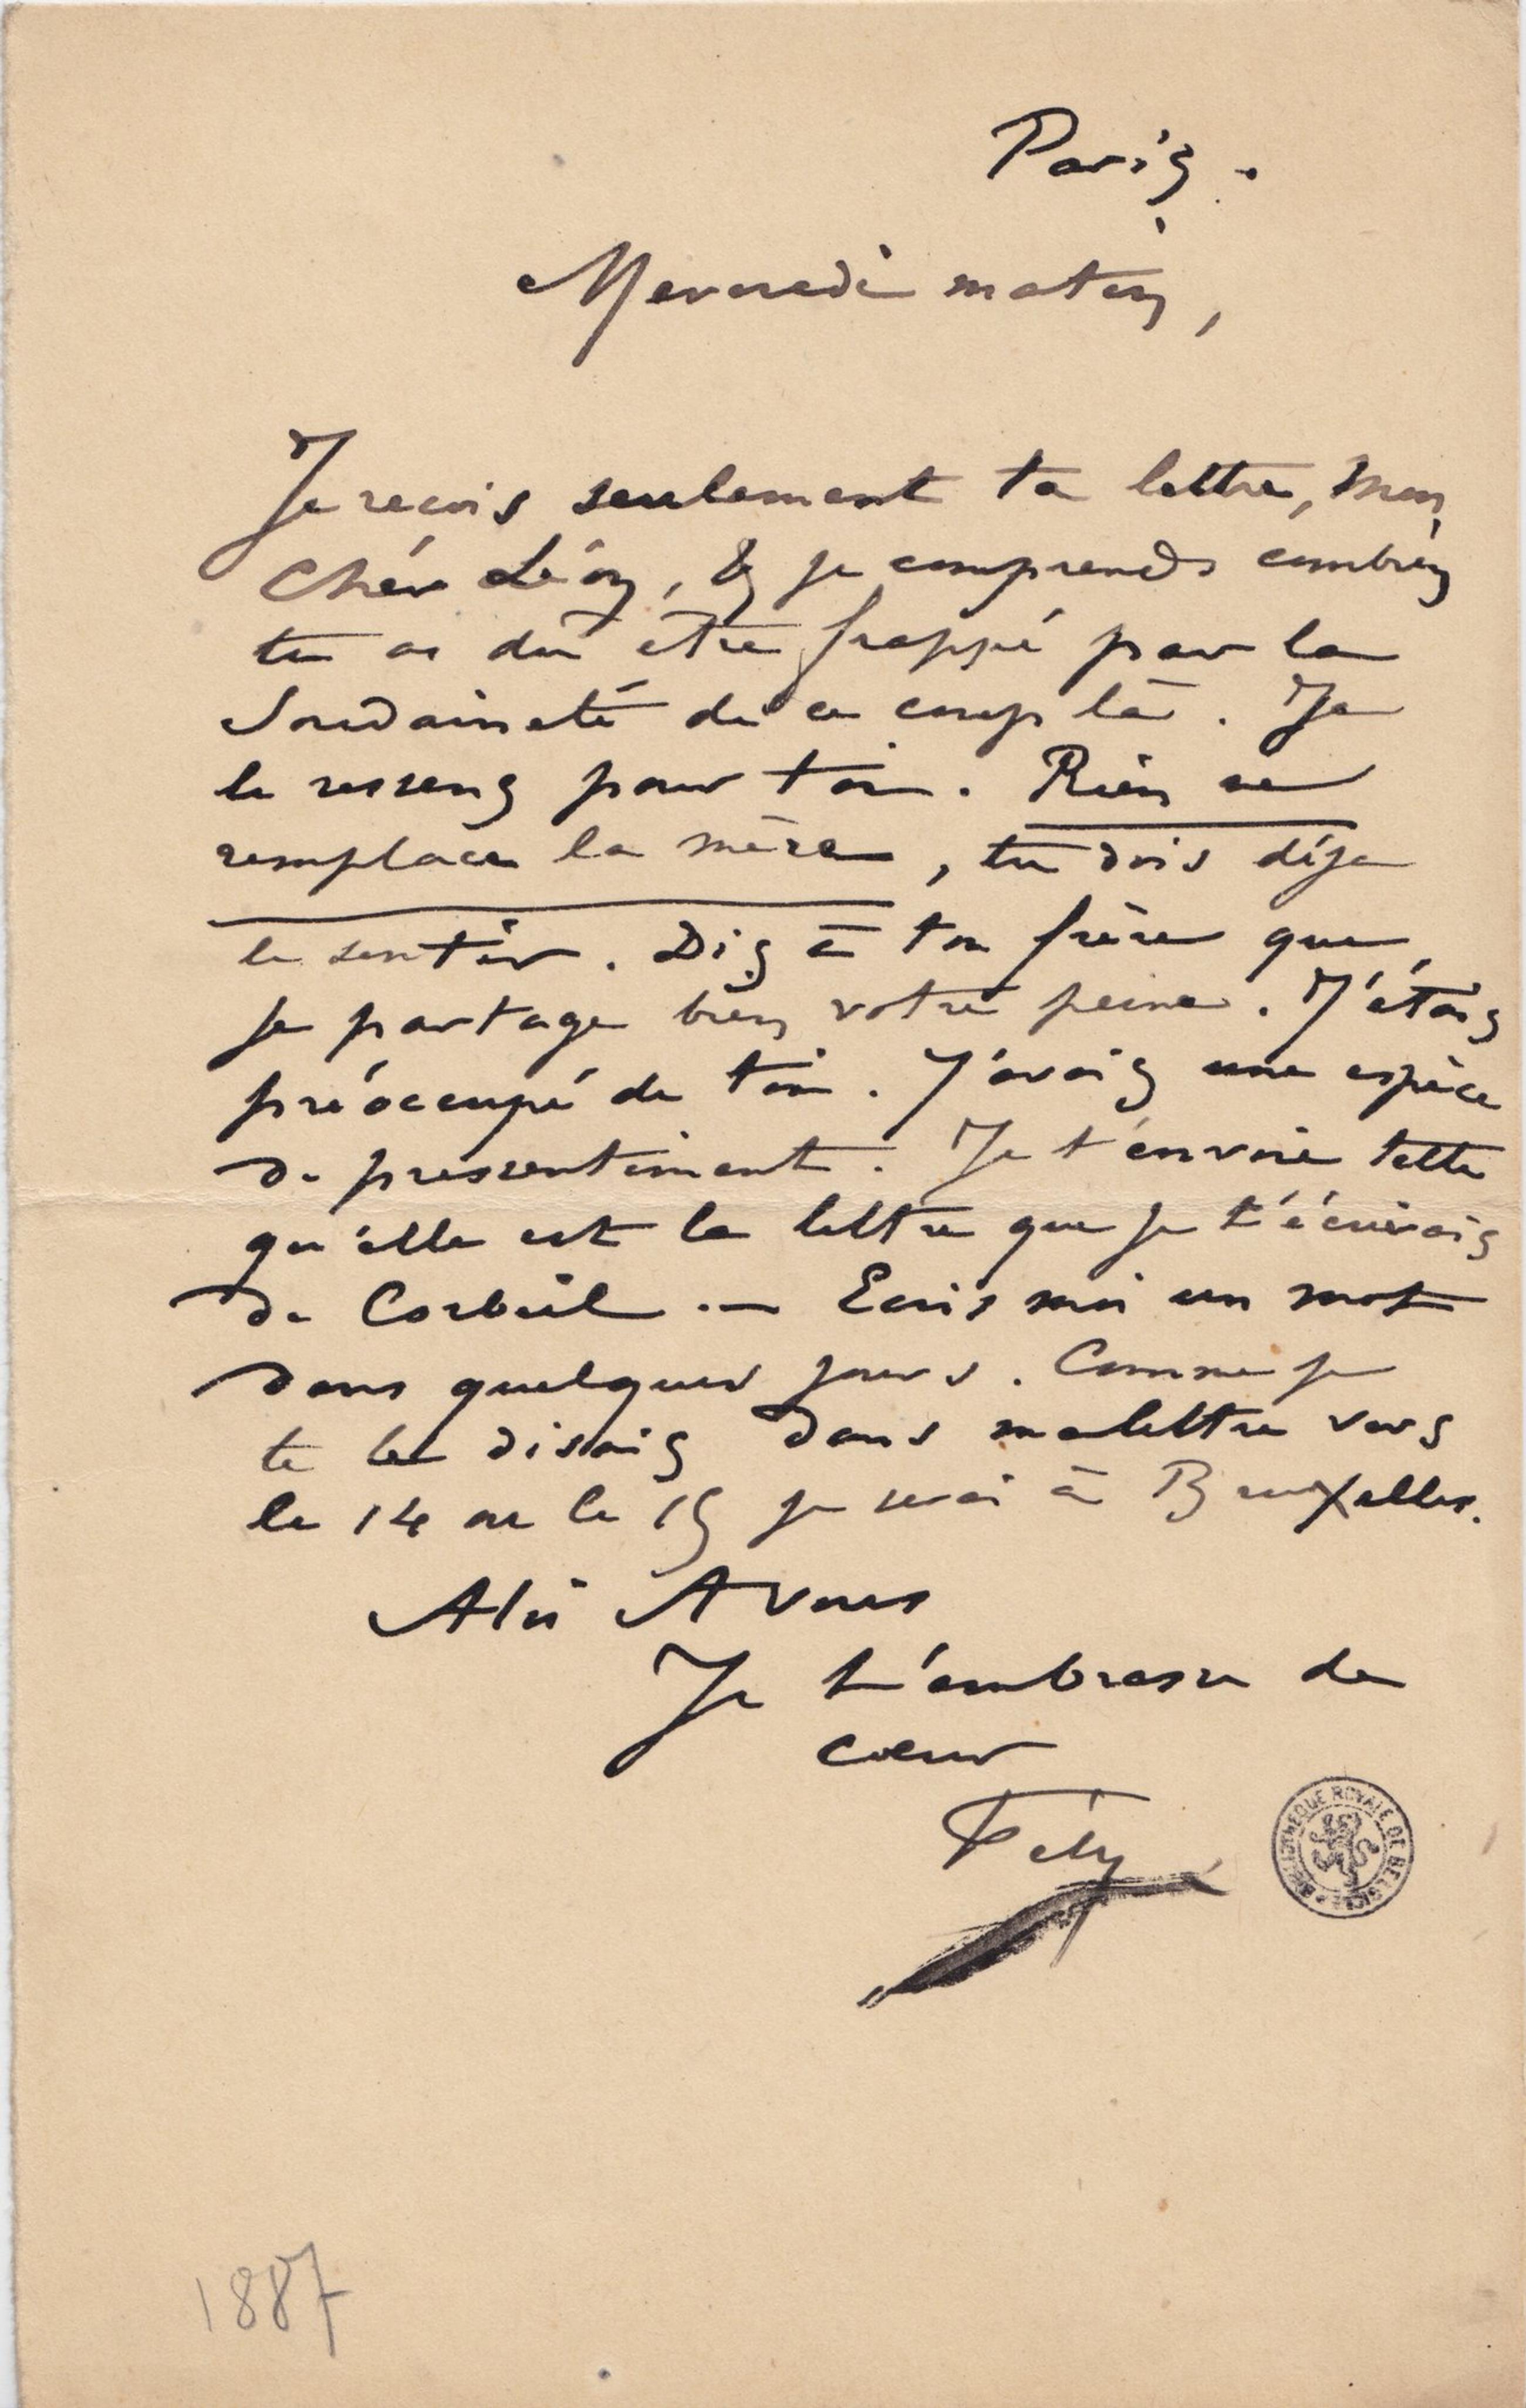 Paris.
Mercredi matin,
Je reçois seulement ta lettre, mon
Cher Léon, & je comprends combien
tu as du être frappé par la
Soudaineté de ce coup là. Je
le ressens pour toi. Rien ne
remplace la mère, tu dois déja
le sentir. Dis à ton frère que
je partage bien votre peine. J'étais
préoccupé de toi. J'avais une espèce
de pressentiment. Je t'envoie telle
qu'elle est la lettre que je t'écrivais
de Corbeil — Ecris moi un mot
dans quelques jours. Comme je
te le disais dans ma lettre vers
le 14 ou le 15 je serai à Bruxelles.
A toi A vous
Je t'embrasse de
cœur
Fély
BIBLIOTHÈQUE ROYALE DE BELGIQUE
1887